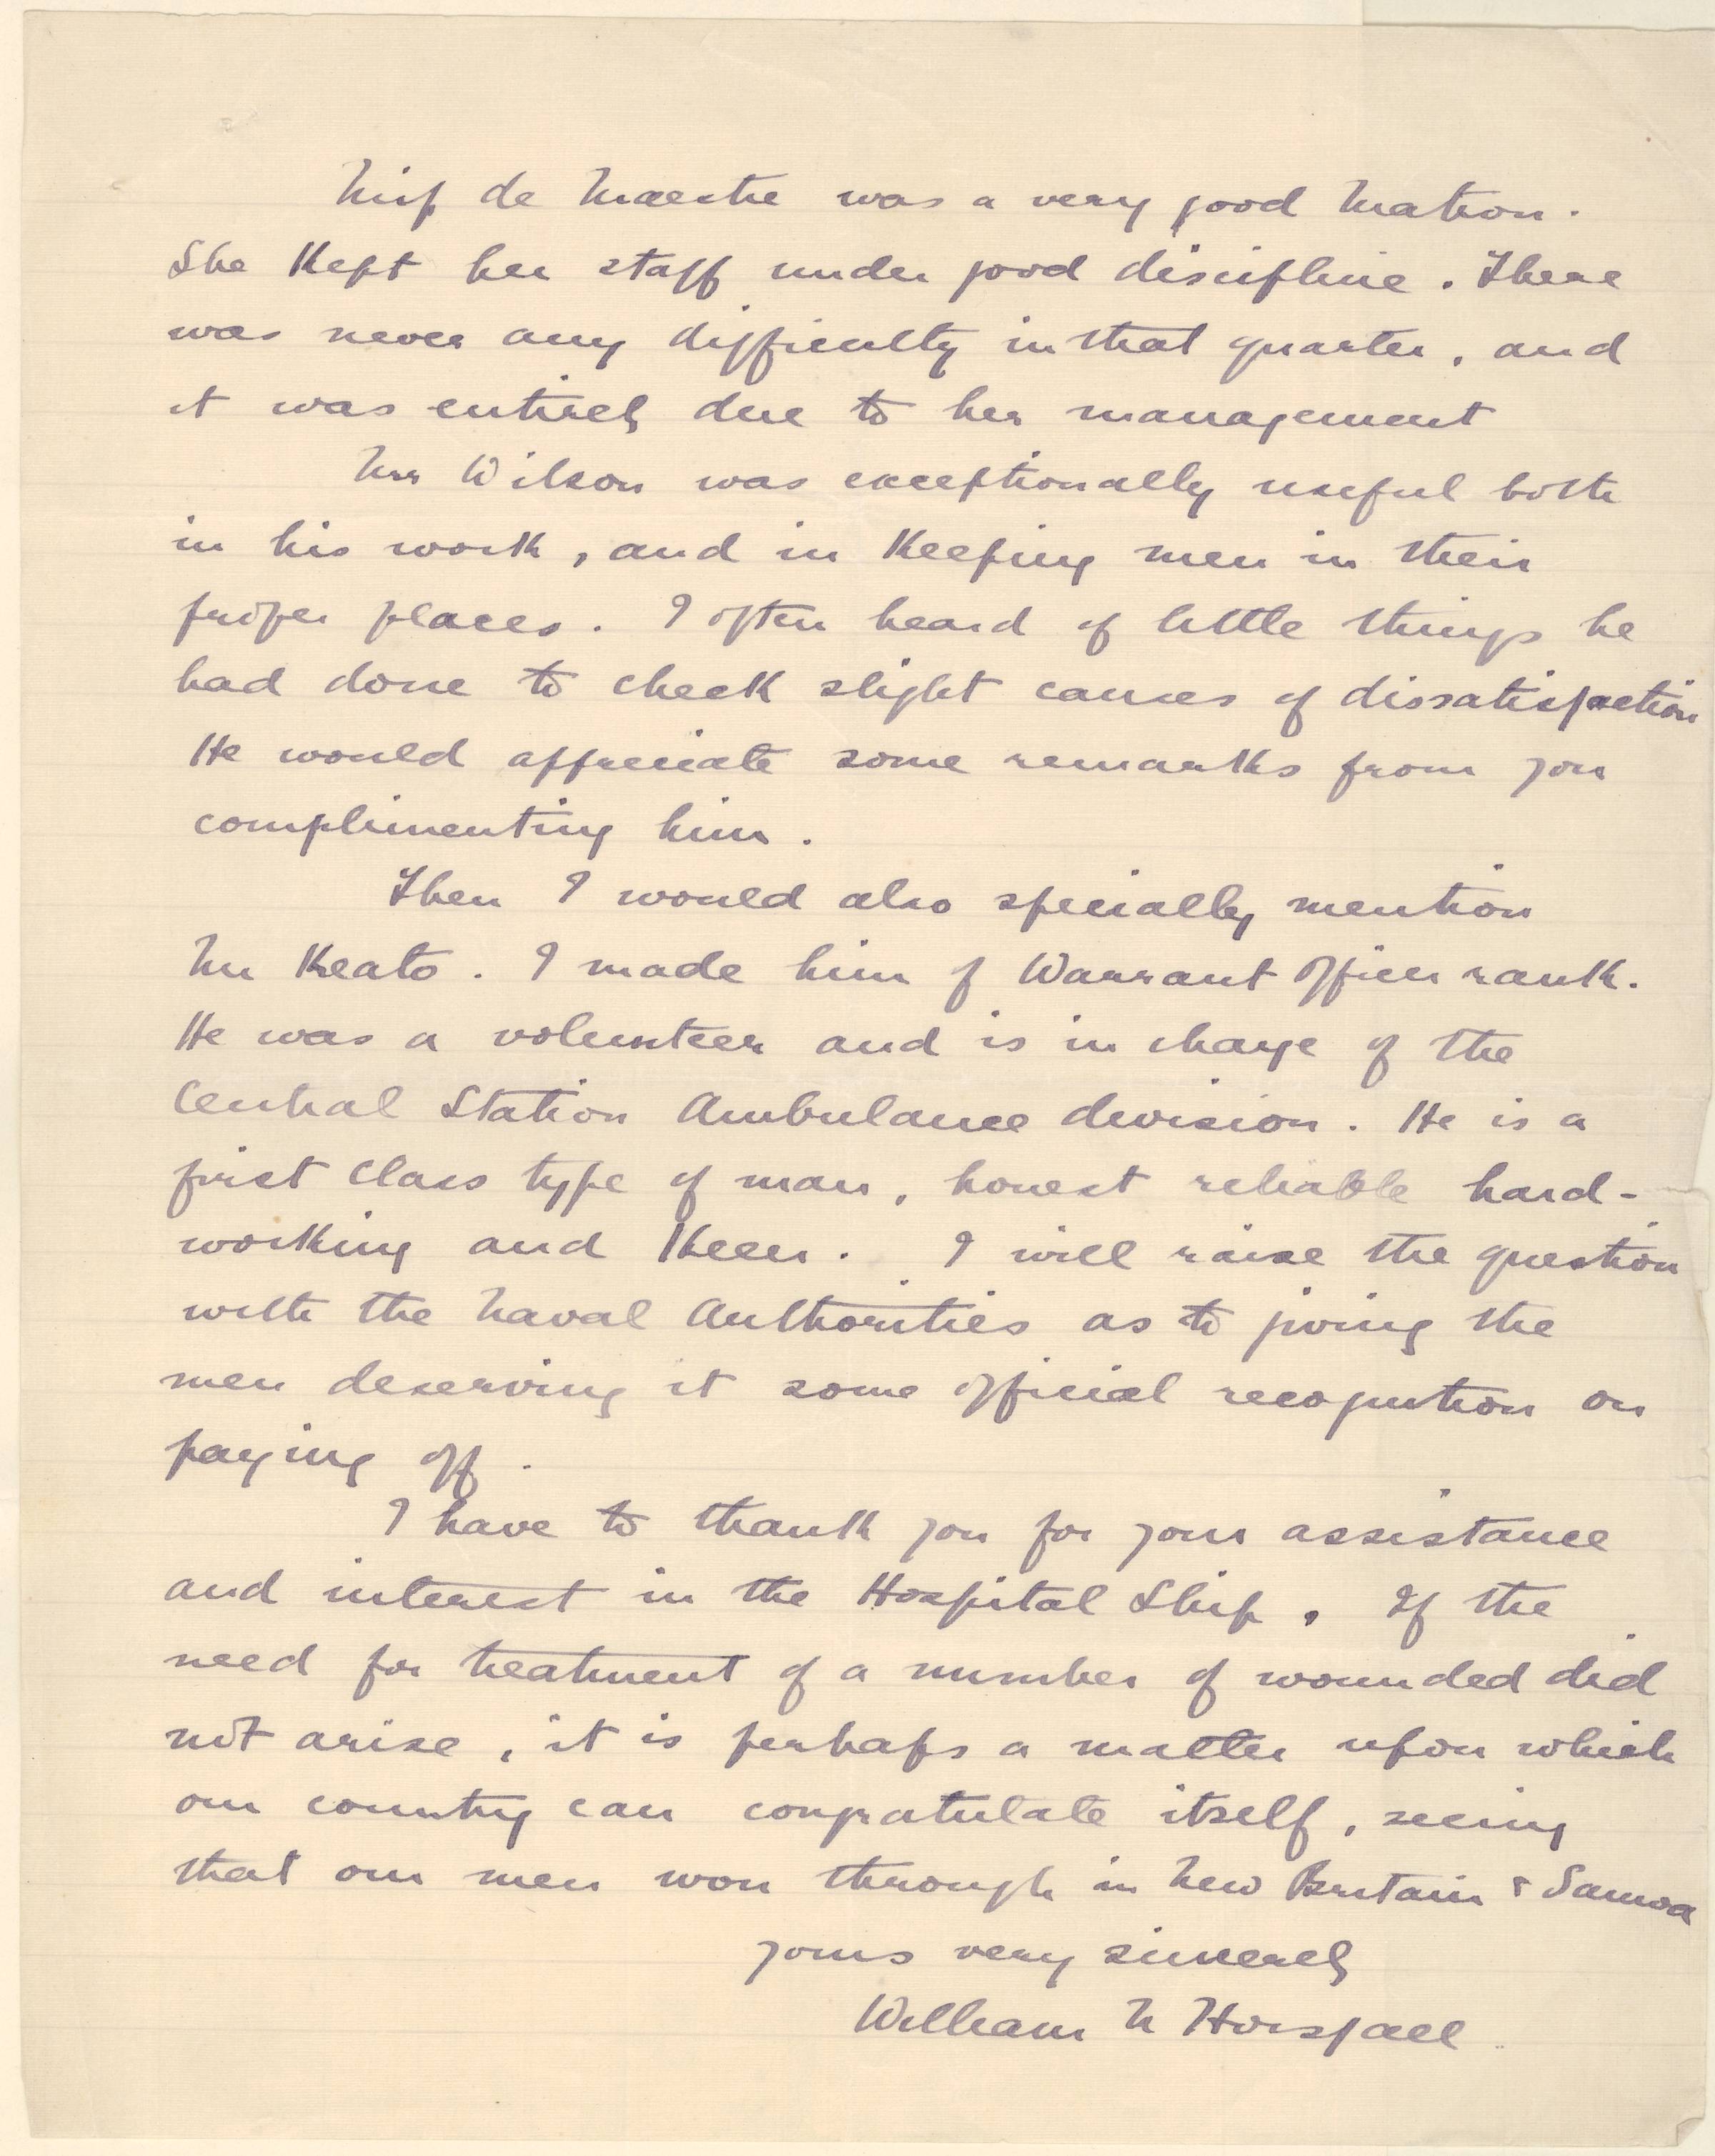 Miss de Maestre was a very good Matron.
She Kept her staff under good discipline. There
was never any difficulty in that quarter, and
it was entirely due to her management
Mr Wilson was exceptionally useful both
in his work, and in Keeping men in their
proper places. I often heard of little things he
had done to check slight causes of dissatisfaction
He would appreciate some remarks from you
complimenting him.
Then I would also specially mention
Mr Keato. I made him of Warrant Officer rank.
He was a volunteer and is in charge of the
Central Station Ambulance division. He is a
first class type of man, honest reliable hard-
working and Keen. I will raise the question
with the Naval Authorities as to giving the
men deserving it some official recognition on
paying off.
I have to thank you for your assistance
and interest in the Hospital Ship. If the
need for treatment of a number of wounded did
not arise, it is perhaps a matter upon which
our country can congratulate itself, seeing
that our men won through in New Britain & Samoa
yours very sincerely
William N Horsfall